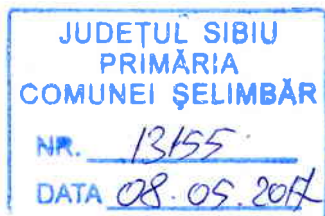 JUDEȚUL SIBIU
PRIMĂRIA
COMUNEI ȘELIMBĂR
NR. 13155
DATA 08.05.2017